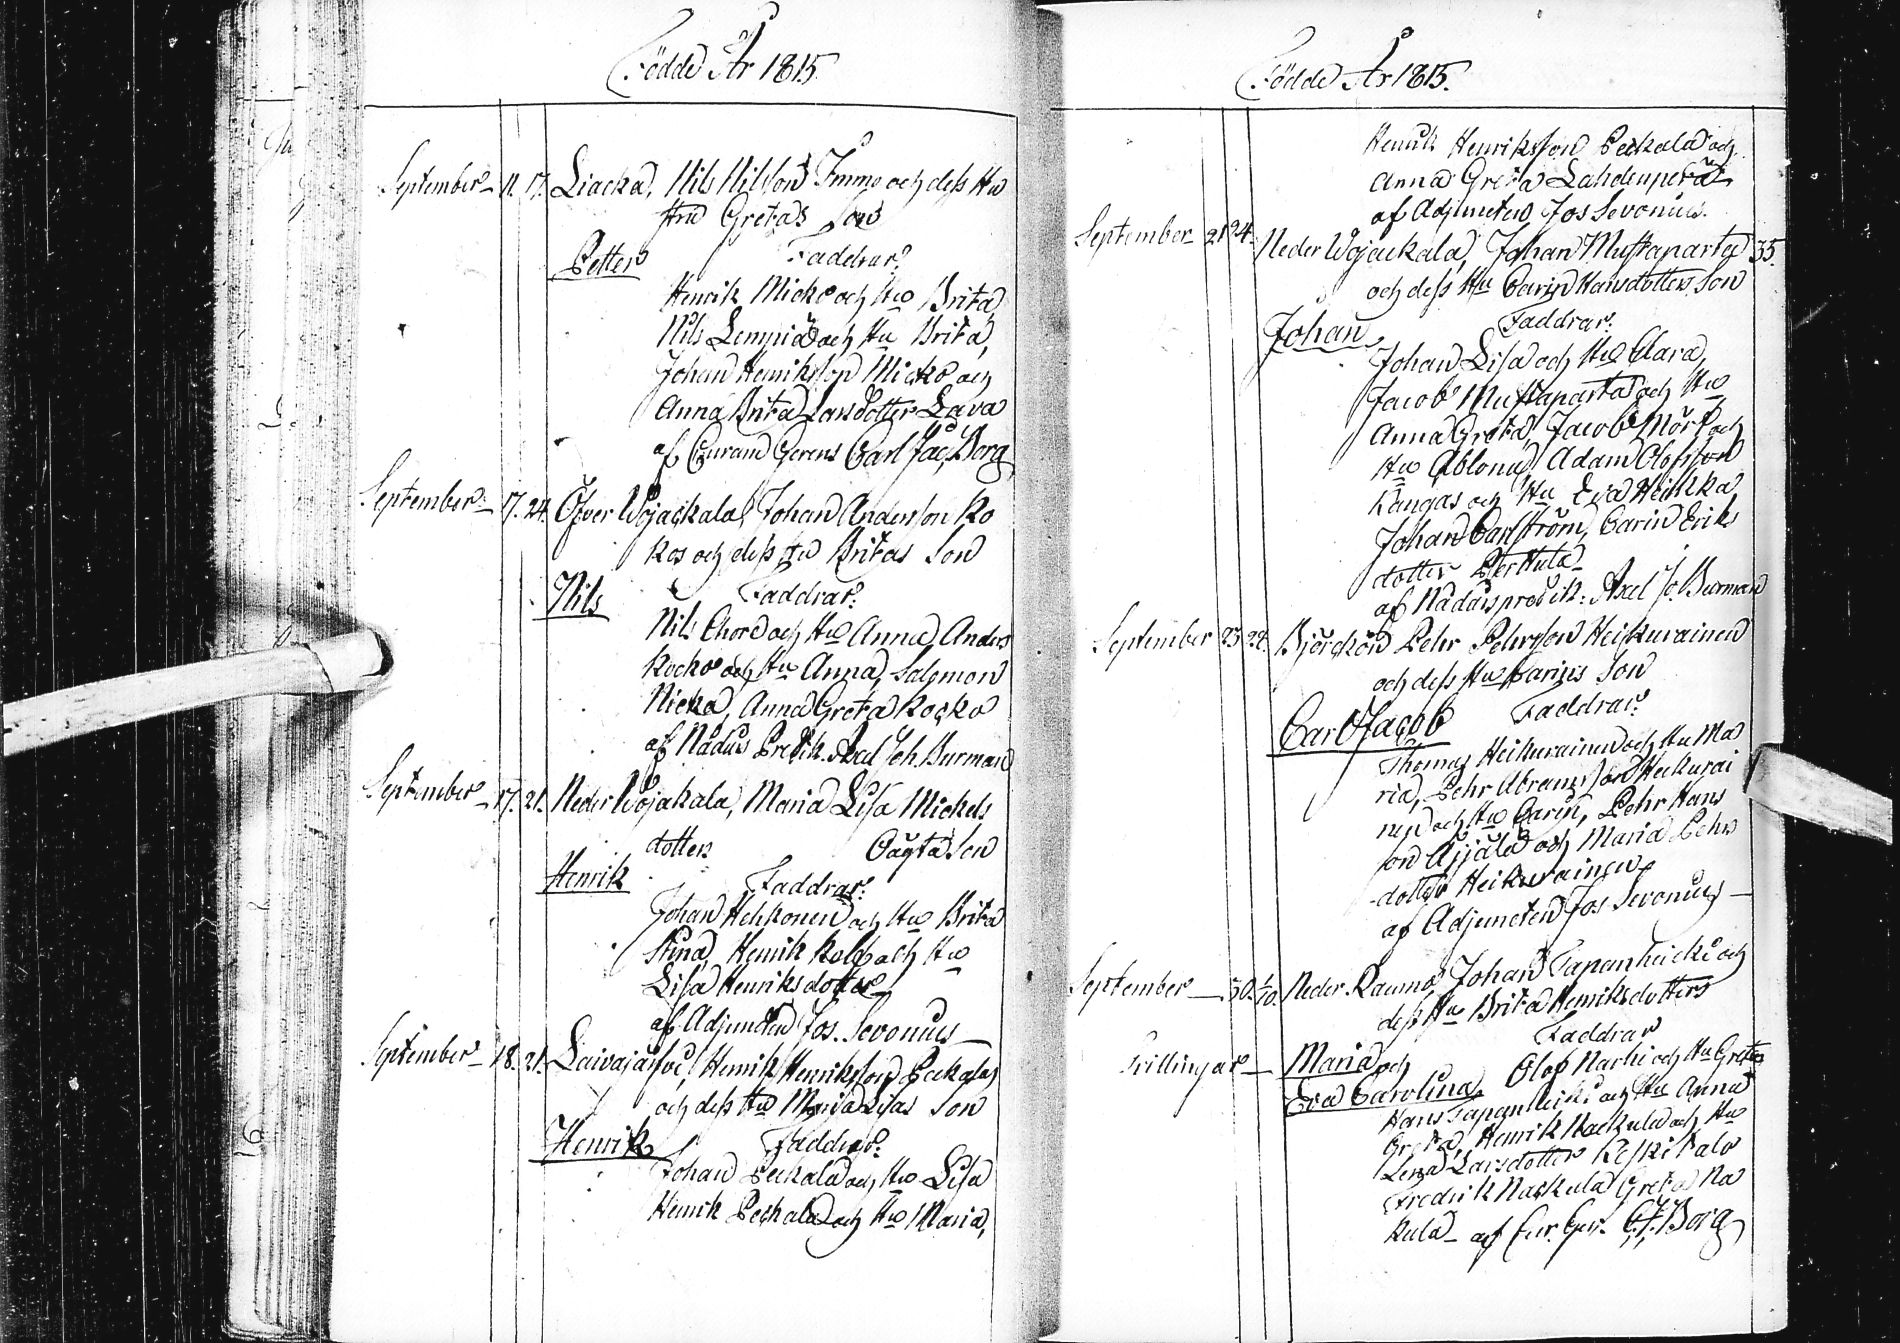 Födde År 1815.
September 11. 17. Liacka, Nils Nilsson Immo och dess Hu
stru Gretas Son
Petter Faddrar:
Henrik Micko och Hu Brita,
Nils Lempiä och Hu Brita,
Johan Henriksson Micko och
Anna Brita Larsdotter Lava
af Curam Gerens Carl Jac. Borg
September 17. 24. Öfver Wojackala, Johan Andersson Ko
kos och dess Hu Britas Son
Nils Faddrar:
Nils Chord och Hu Anna, Anders
Kocko och Hu Anna, Salomon
Nicka, Anna Greta Kocko
af Nådårs Predik. Axel Joh. Burman
September 17. 21. Neder Wojakala, Maria Lisa Mickels
dotters Oägta Son
Henrik Faddrar:
Johan Hehkonen och Hu Brita
Stina, Henrik Kolb och Hu
Lisa Henriksdotter
af Adjuncten Jos. Sevonius
September 18. 21. Laivajärfvi, Henrik Henriksson Peckalas
och dess Hu Maria Lisas Son
Henrik Faddrar:
Johan Peckala och Hu Lisa
Henrik Peckala och Hu Maria,
Födde År 1815.
Henrik Henriksson Peckala och
Anna Greta Lahdenperä
af Adjuncten Jos Sevonius.
September 21. 24. Neder Wojackala, Johan Mustaparta 35.
och dess Hu Carin Hansdotters Son
Johan Faddrar:
Johan Lisa och Hu Clara,
Jacob Mustaparta och Hu
Anna Greta, Jacob Mört och
Hu Ablona, Adam Olofsson
Kangas och Hu Eva Heickka
Johan Carlström, Carin Eriks
dotter Perttula
af Nådårspredik: Axel J. Burman
September 23. 24. Björckön Pehr Pehrsson Heikurainen
och dess Hu Carins Son
Carl Jacob Faddrar:
Thomas Heikurainen och Hu Ma
ria, Pehr Abramsson Heikurai
nen och Hu Carin, Pehr Hans
son Äjjälä och Maria Pehrs
dotter Heikurainen
af Adjuncten Jos Sevonius
September 30. 1/10. Neder Raumo Johan Tapanheicki och
dess Hu Brita Henriksdotters
Faddrar
Trillingar Maria och Olof Narhi och Hu Greta
Eva Carolina
Hans Tapanheicki och Hu Anna
Greta, Henrik Nackula och Hu
Lena Larsdotter Keskitalo
Fredrik Nackula Greta Na
kula af Cur. Ger. C.J. Borg